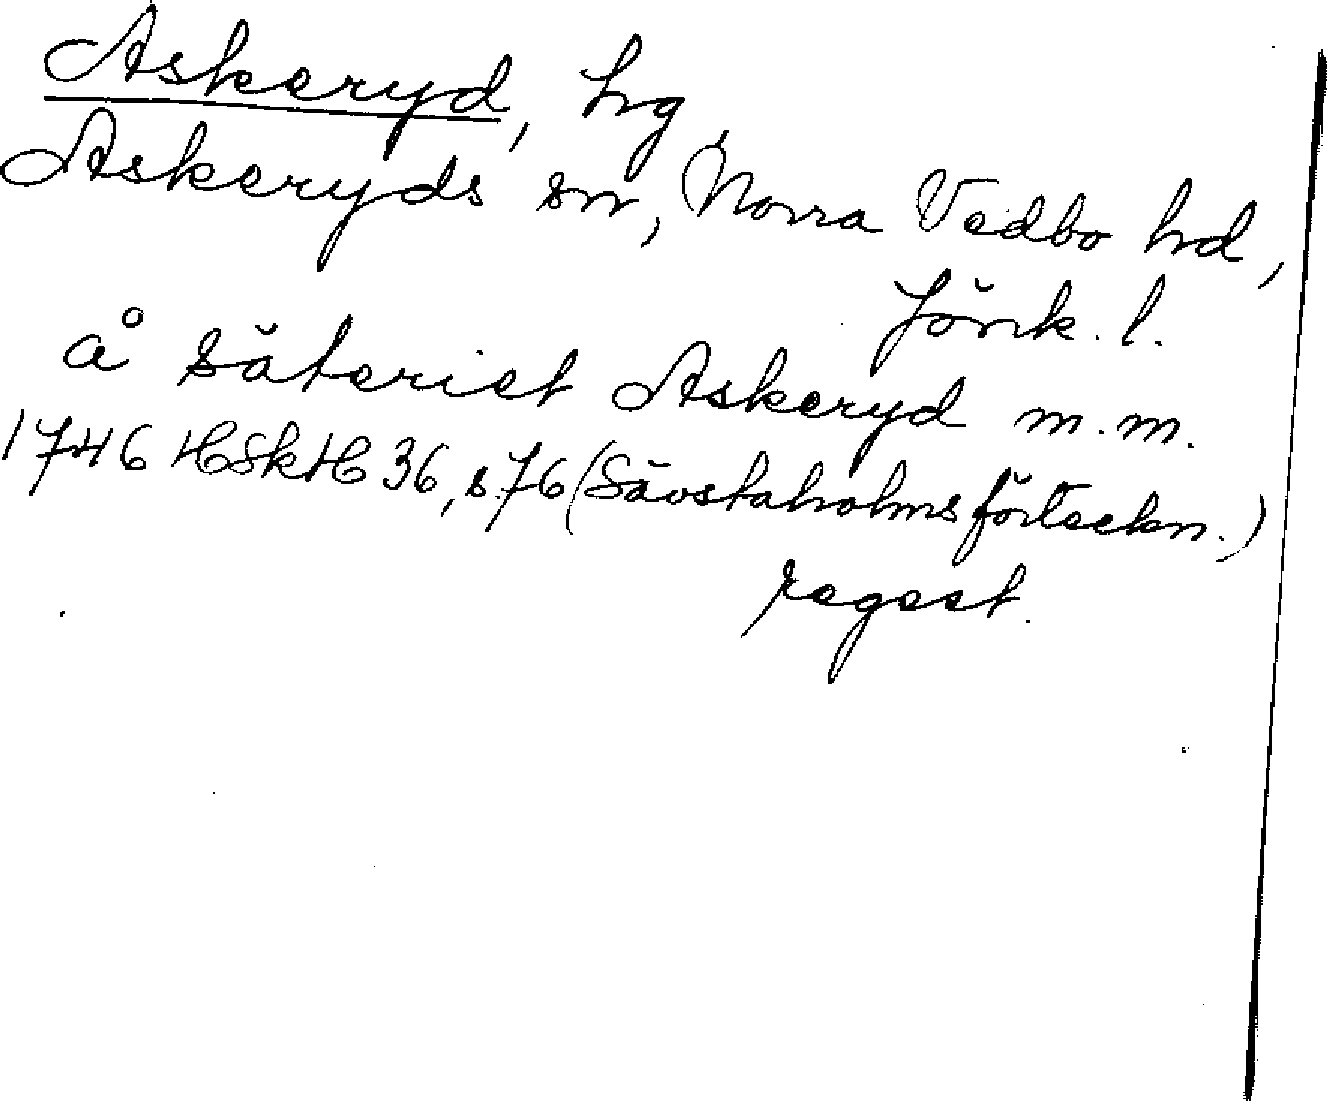 Askeryd, hg
Askeryds sn, Norra Vedbo hd,
Jönk. l.
å säteriet Askeryd m.m.
1746 HSkH 36, s. 76 (Sävstaholms förteckn.)
regest.